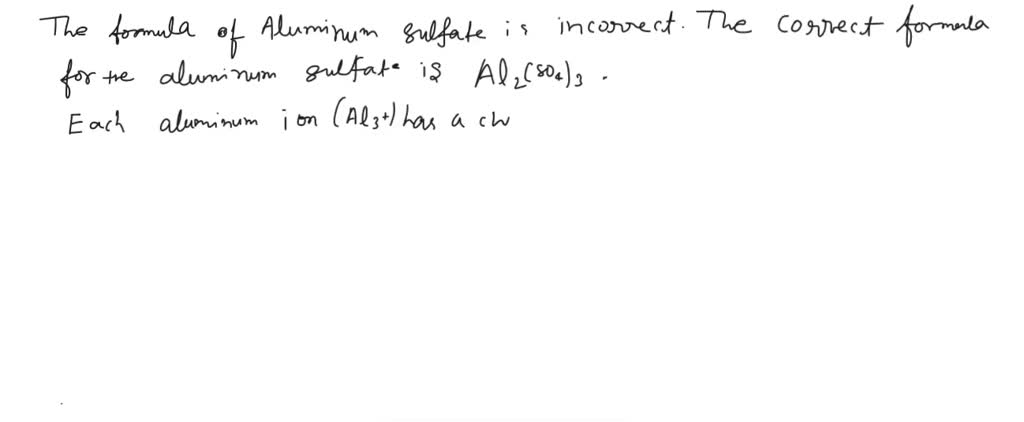 The formula of Aluminum sulfate is incorrect. The correct formula
for the aluminum sulfate is Al2(SO4)3.
Each aluminum ion (Al3+) has a ch